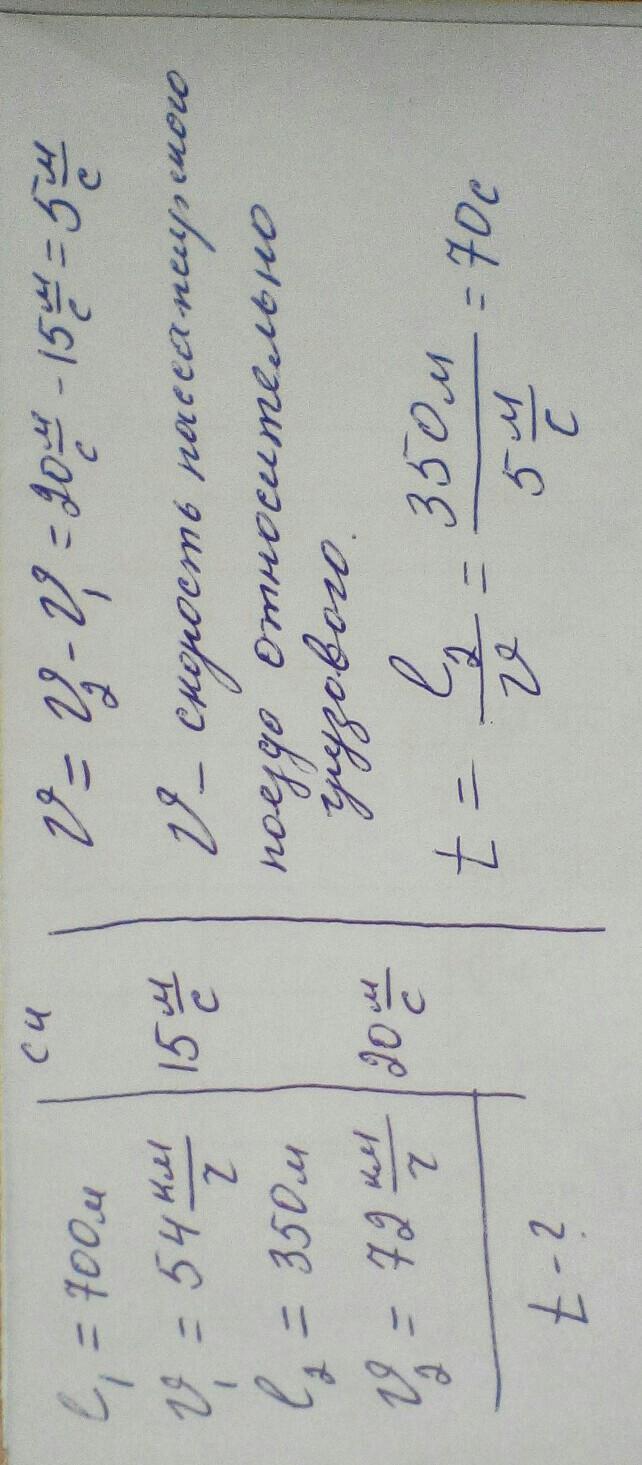 l₁ = 700м
v₁ = 54 км/ч
l₂ = 350м
v₂ = 72 км/ч
t - ?
СИ
15 м/с
20 м/с
v = v₂ - v₁ = 20 м/с - 15 м/с = 5 м/с
v - скорость пассажирского
поезда относительно
грузового.
t = l₂/v = 350м/5 м/с = 70с